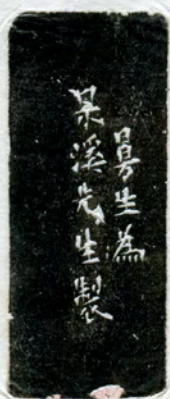 曼生為
杲溪先生製